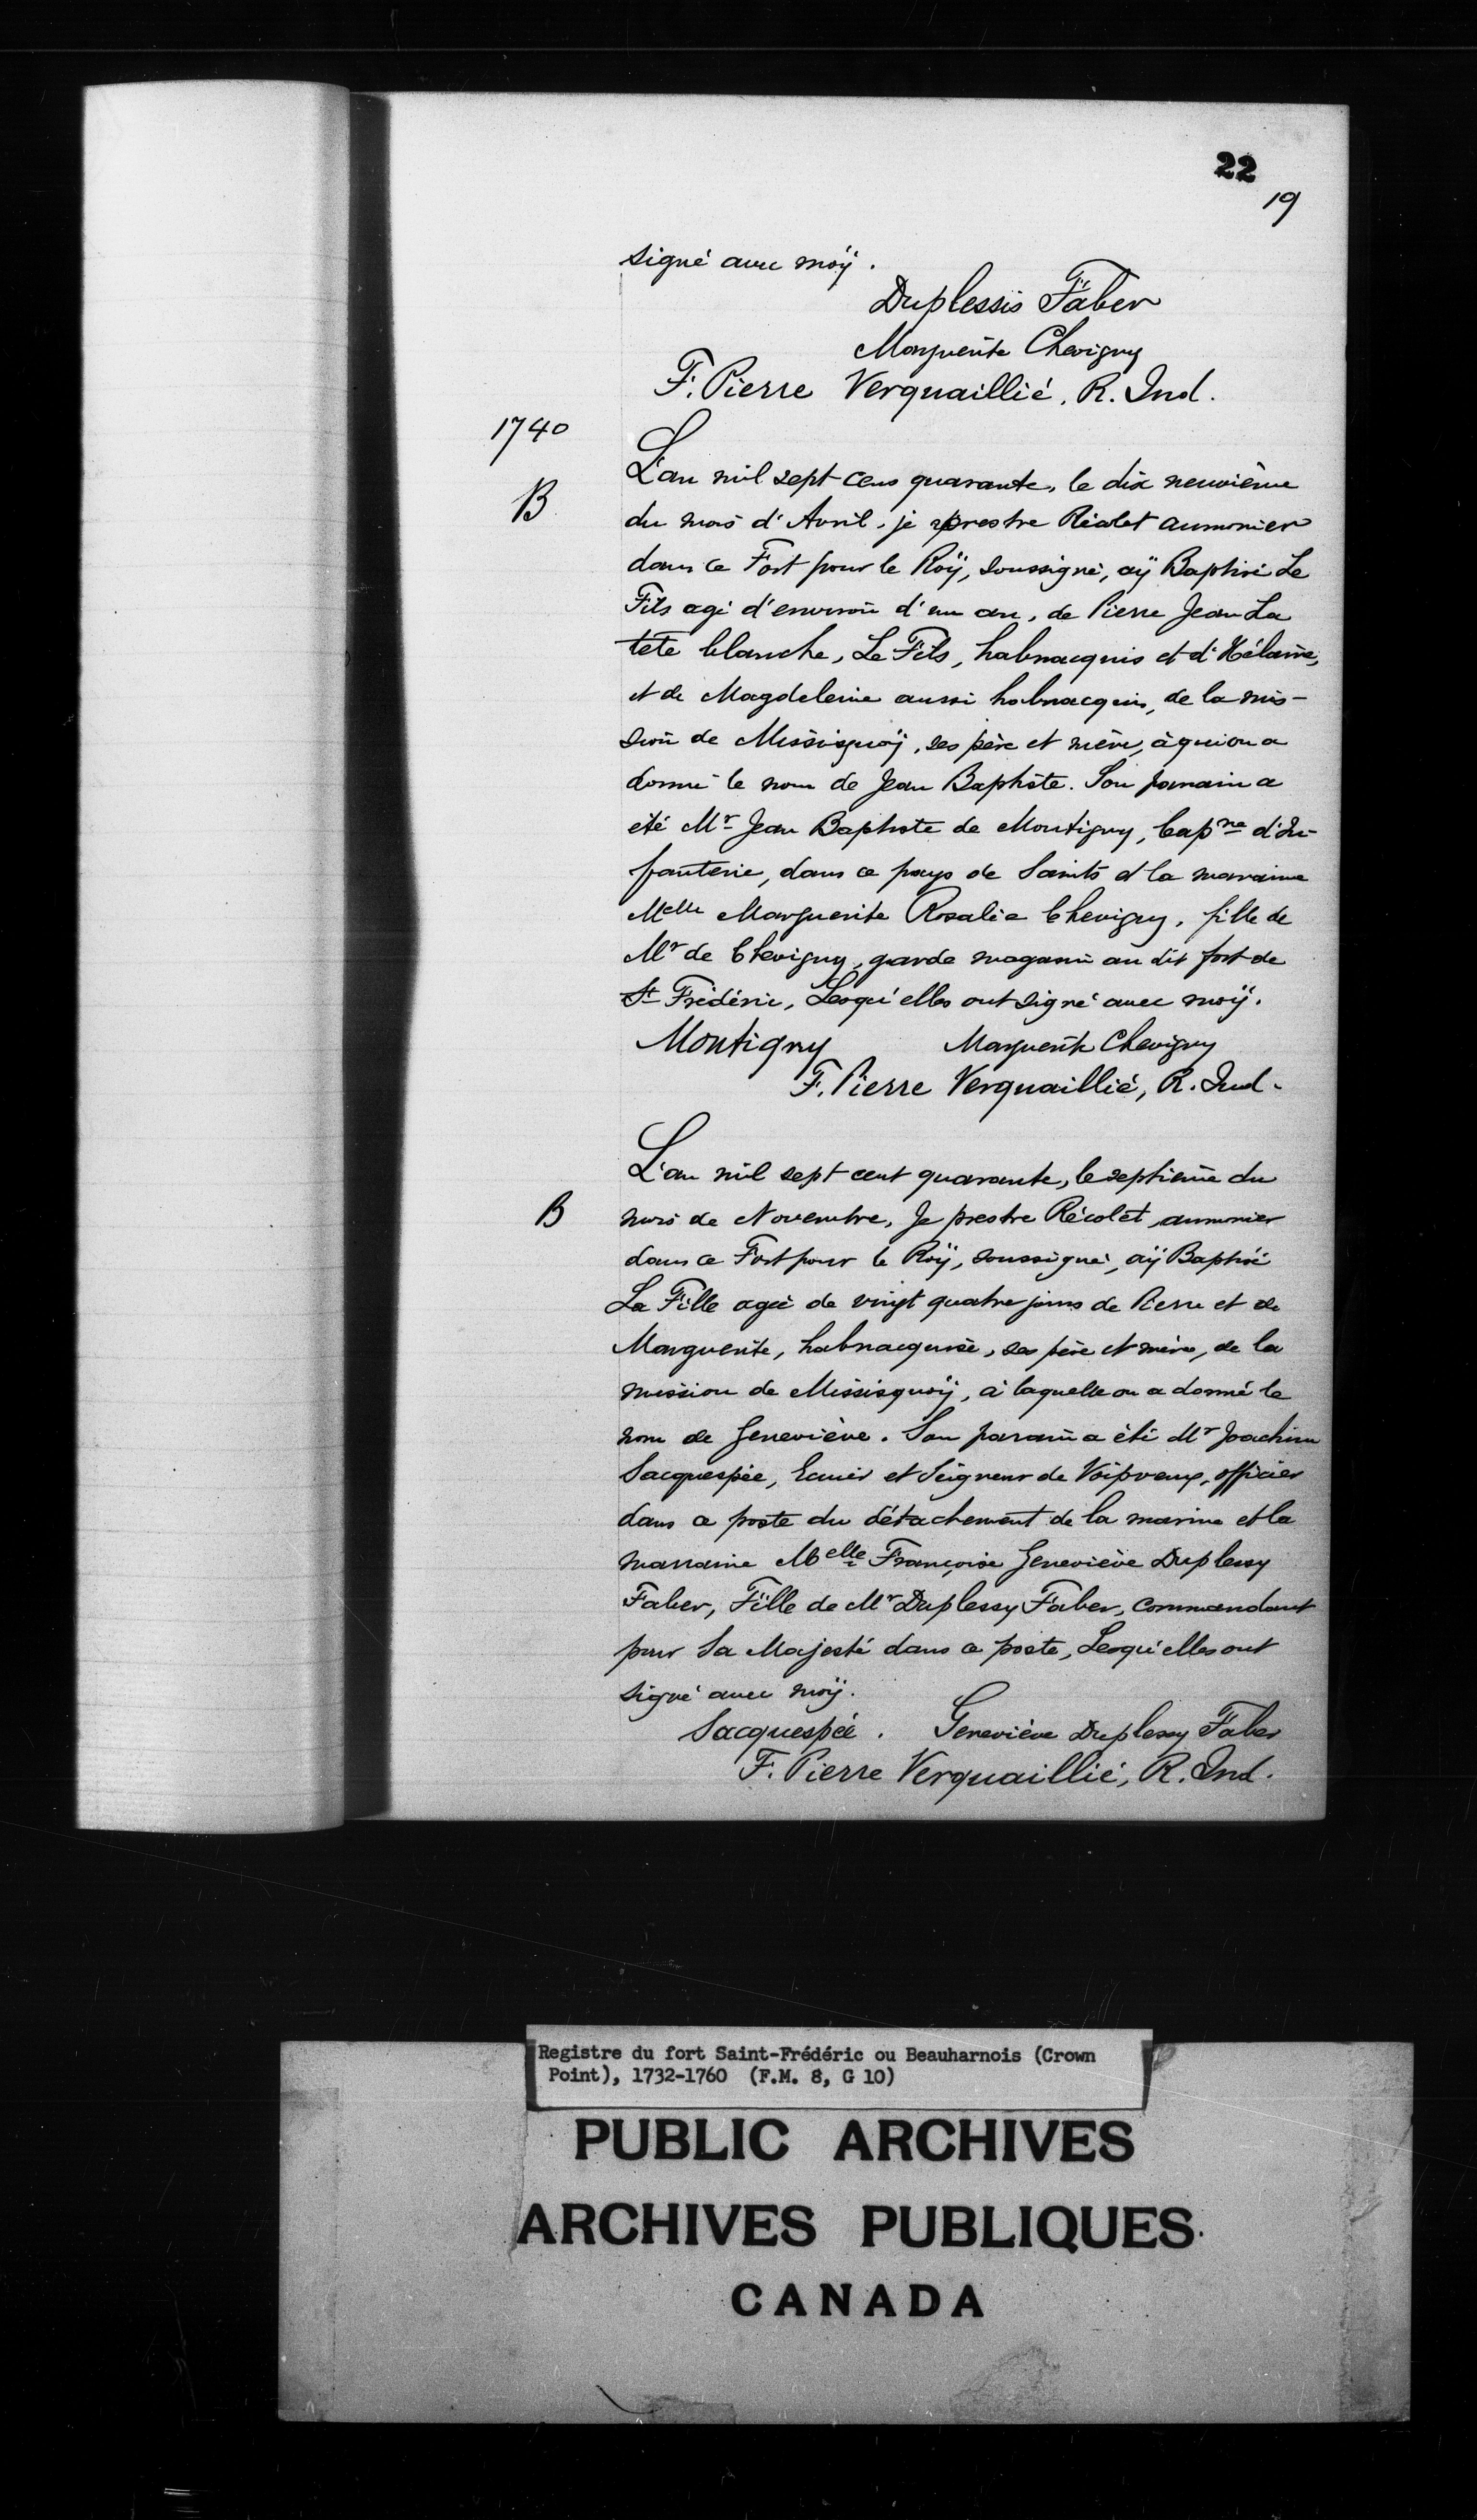 22
19
signé avec moÿ.
Duplessis Faber
Marguerite Chevigny
F. Pierre Verquaillié, R. Ind.
1740
L'an mil sept cens quarante, le dix neuvième
B
du mois d'Avril, je prestre Récolet aumonier
dans ce Fort pour le Roÿ, soussigné, aÿ Baptisé Le
Fils agé d'environ d'un an, de Pierre Jean La
tete blanche, Le Fils, habnacquis et d'Hélaine,
et de Magdeleine aussi habnacquis, de la mis-
sion de Missisquoÿ, ses père et mère, à qui on a
donné le nom de Jean Baptiste. Son parrain a
été Mr Jean Baptiste de Montigny, Capne d'In-
fanterie, dans ce pays de Saints et la maraine
Melle Marguerite Rosalie Chevigny, fille de
Mr de Chevigny, garde magasin au dit fort de
St Frédéric, Lesqu'elles ont signé avec moÿ.
Montigny Marguerite Chevigny
F. Pierre Verquaillié, R. Ind.
L'an mil sept cent quarante, le septième du
B
mois de Novembre, Je prestre Récolet, aumonier
dans ce Fort pour le Roÿ, soussigné, aÿ Baptisé
La Fille agée de vingt quatre jours de Pierre et de
Marguerite, habnacquise, ses père et mère, de la
mission de Missisquoÿ, à laquelle on a donné le
nom de Geneviève. Son parain a été Mr Joachim
Sacquespée, Ecuier et Seigneur de Voipreux, officier
dans ce poste du détachement de la marine et la
marraine Melle Françoise Geneviève Duplessy
Faber, Fille de Mr Duplessy Faber, commandant
pour Sa Majesté dans ce poste, Lesqu'elles ont
signé avec moÿ.
Sacquespée. Geneviève Duplessy Faber
F. Pierre Verquaillié, R. Ind.
Registre du fort Saint-Frédéric ou Beauharnois (Crown
Point), 1732-1760 (F.M. 8, G 10)
PUBLIC ARCHIVES
ARCHIVES PUBLIQUES
CANADA